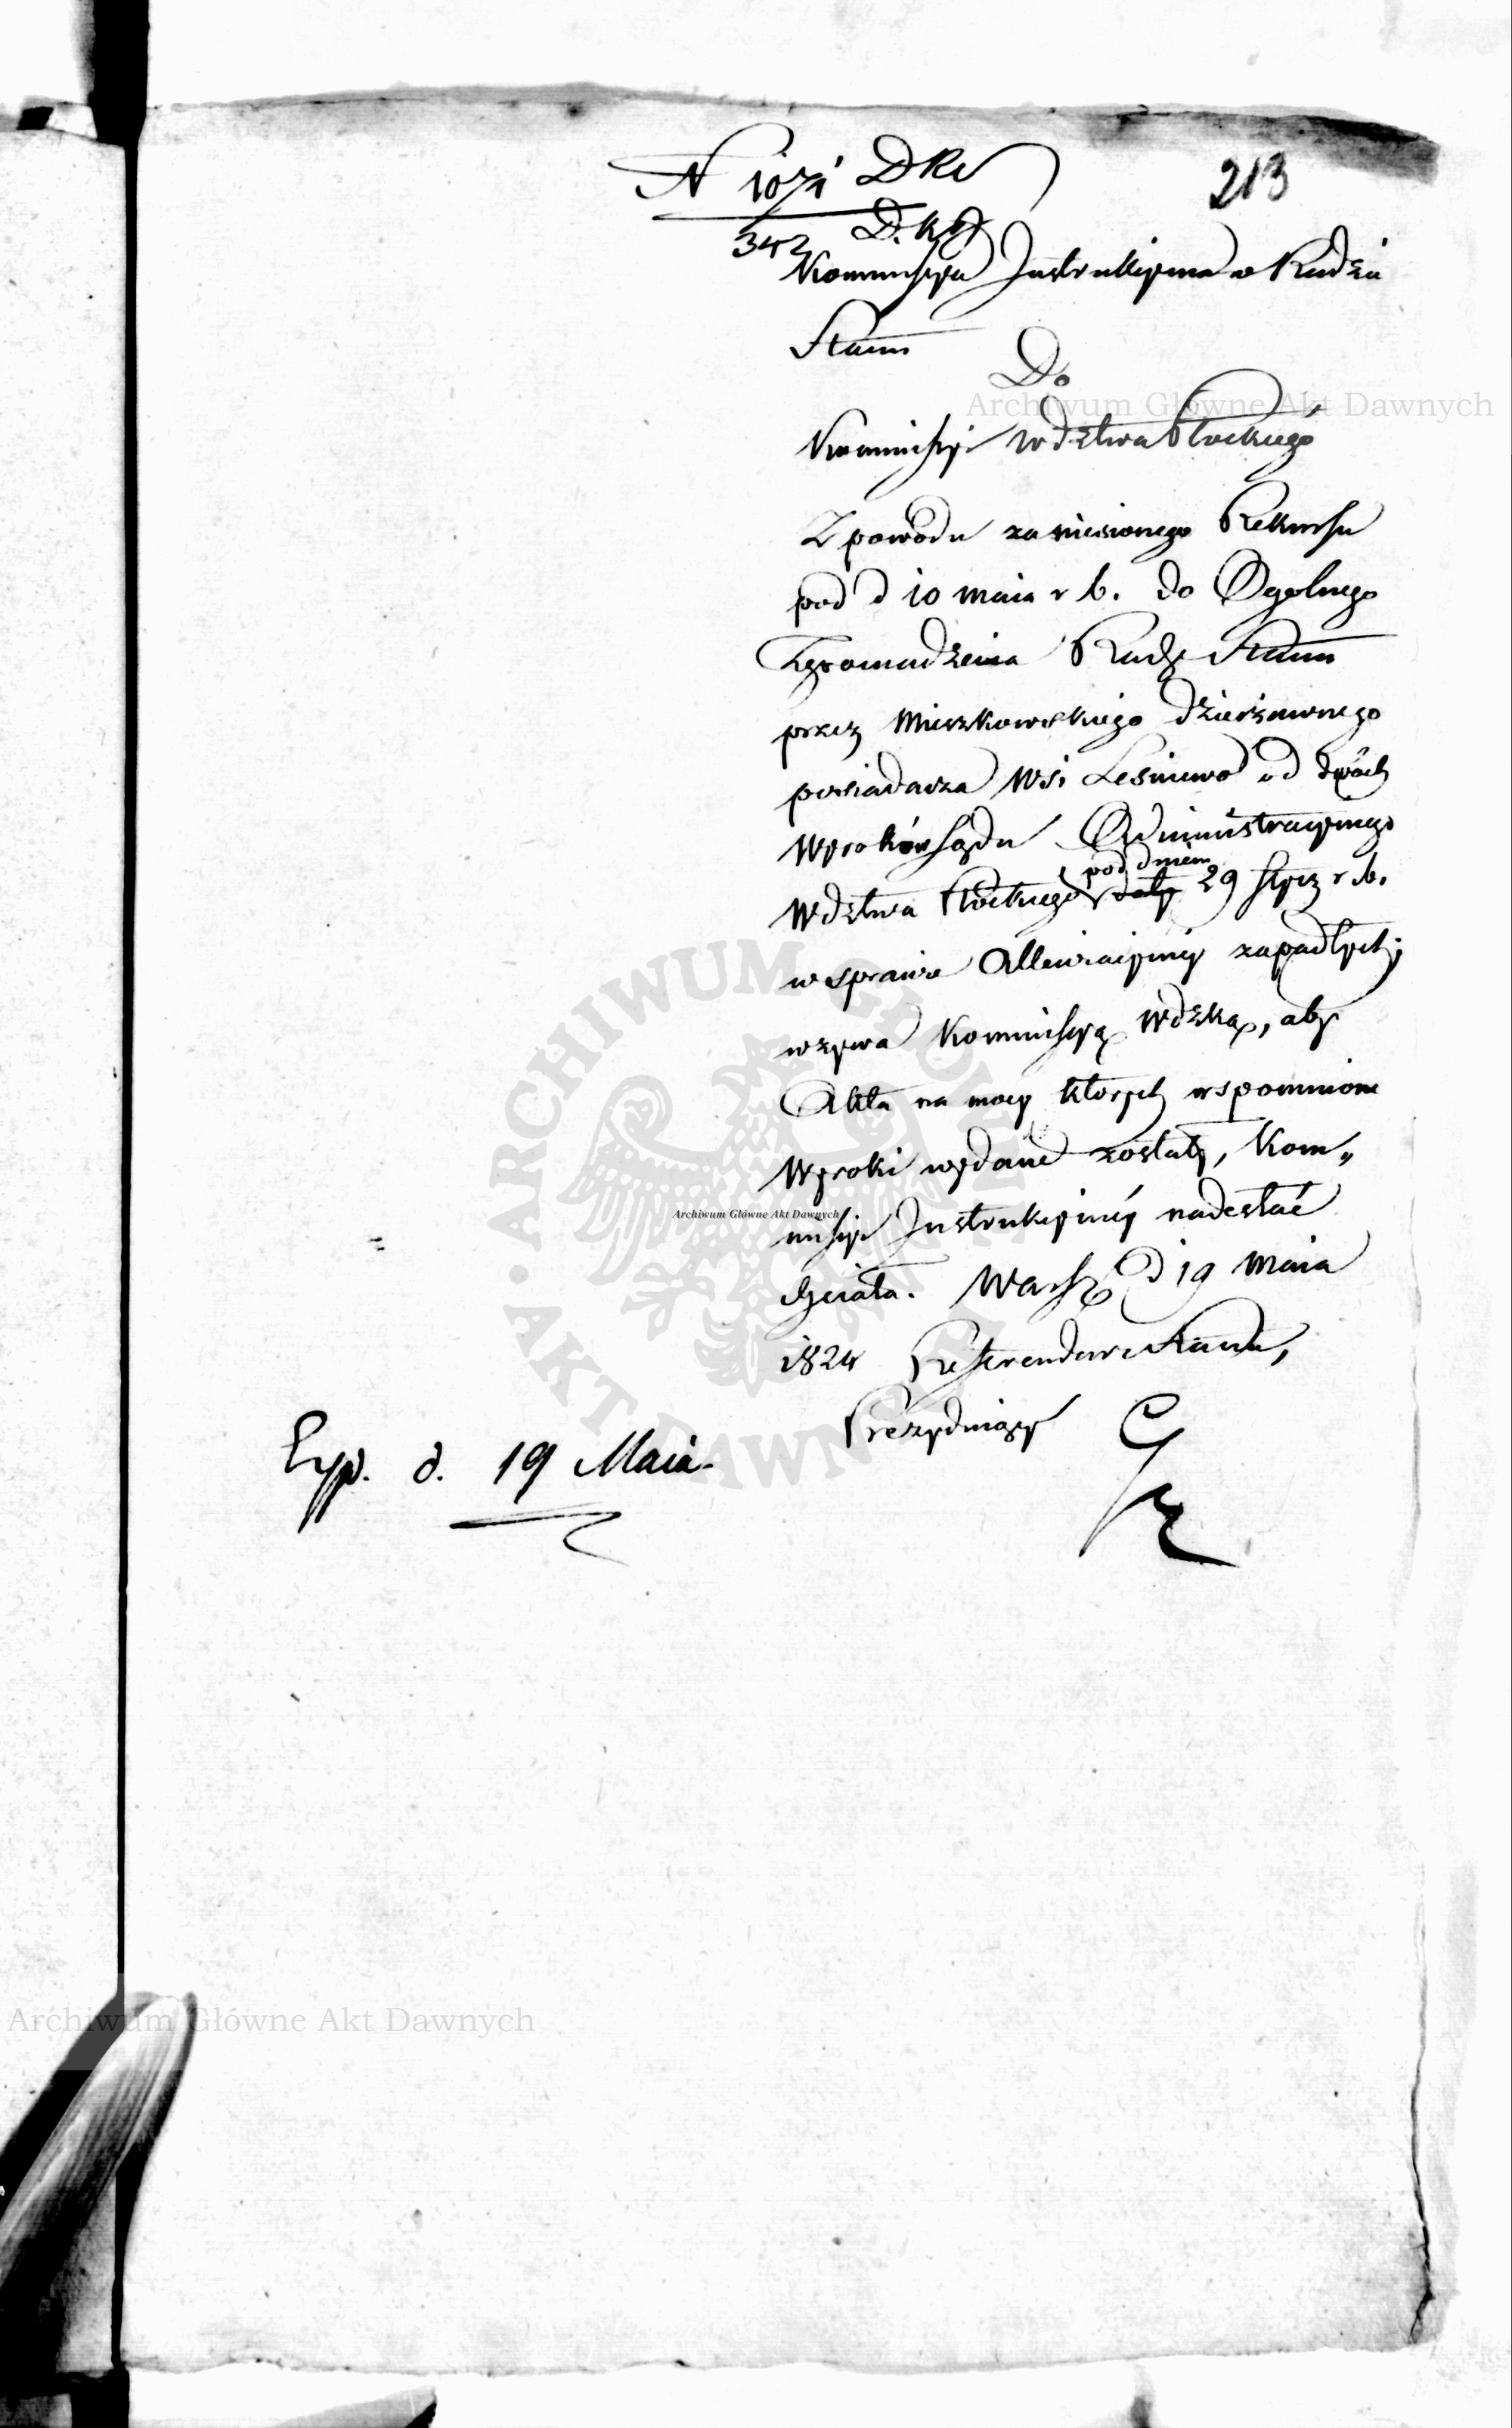 N 1071 DKr
342 D.K.
213
Kommissya Instrukcyina w Radzie
Stanu
Do
Kommissyi Wdztwa Płockiego
Z powodu zaniesionego Rekursu
pod d 10 maia r b. do Ogolnego
Zgromadzenia Rady Stanu
przez Mieszkowskiego dzierżawnego
posiadacza Wsi Lesniewo od dwóch
Wyroków Sądu Administracyinego
Wdztwa Płockiego pod dniem daty 29 stycz r. b.
w sprawie Allewiacyiney zapadłych;
wzywa Kommissyą Wdzką, aby
Akta na mocy ktorych wspomnione
Wyroki wydane zostały, Kom„
missyi Instrukcyiney nadesłać
chciała. Warsz d 19 Maia
1824 Referendarz Stanu,
Prezyduiący
Exp. d. 19 Maia.
Archiwum Główne Akt Dawnych
Archiwum Główne Akt Dawnych
Archiwum Główne Akt Dawnych
ARCHIWUM GŁÓWNE • AKT DAWNYCH